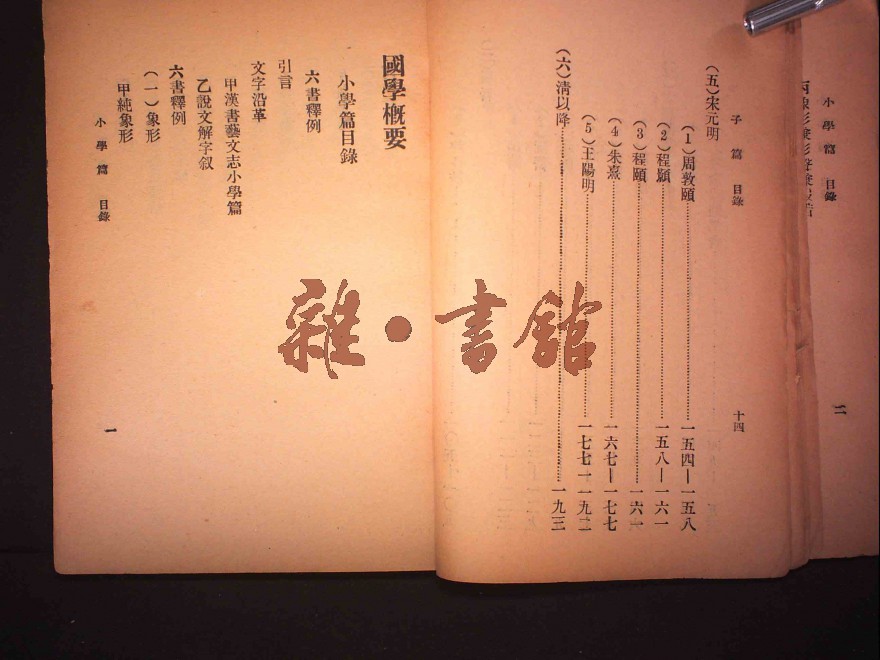 小學篇 目錄
二
子篇 目錄
十四
(五)宋元明
(1)周敦頤……一五四—一五八
(2)程顥……一五八—一六一
(3)程頤……一六一
(4)朱熹……一六七—一七七
(5)王陽明……一七七—一九二
(六)清以降……一九三
國學概要
小學篇目錄
六書釋例
引言
文字沿革
甲漢書藝文志小學篇
乙說文解字叙
六書釋例
(一)象形
甲純象形
小學篇 目錄
一
雜·書館